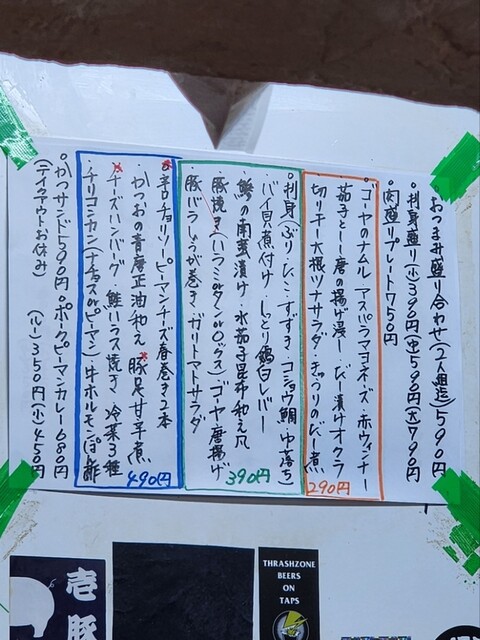 おつまみ盛り合わせ(2人組迄)590円
•刺身盛り(小)390円(中)590円(大)790円
肉盛りプレート750円
ゴーヤのナムル・アスパラマヨネーズ・赤ウィンナー
茄子としし唐の揚げ浸し・ぴー漬けオクラ
切り干大根ツナサラダ・きゅうりの
290円
•刺身(ぶり・ひこ・すずき・コショウ鯛ゆ落ち)
バイ貝煮付け・しっとり鶏白レバー
鯵の南蛮漬け・水茄子昆布和え風
豚焼き(ハラミorタンorロックス)・ゴーヤ唐揚げ
豚バラしょうが巻き・ガリトマトサラダ
390円
•辛口チョリソーピーマンチーズ春巻き2本
かつおの青唐正油和え 豚足甘辛煮
チーズハンバーグ・鮭ハラス焼き・冷菜3種
・チリコンカン(ナチョスorピーマン)・牛ホルモンぽん酢
490円
•かつサンド590円•ポークピーマンカレー680円
(テイクアウトお休み) (ルー)350円(小)450円
壱豚
THRASHZONE
BEERS
ON
TAPS